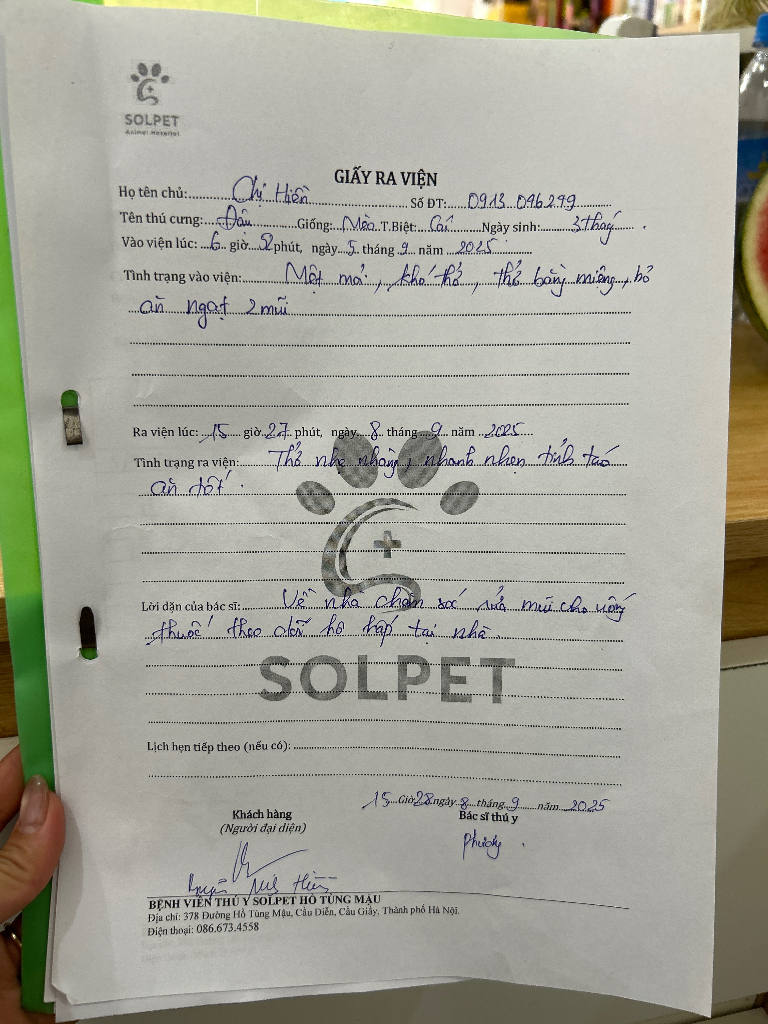 SOLPET
Animal Hospital
GIẤY RA VIỆN
Họ tên chủ: Chị Hiền Số ĐT: 0913 096299
Tên thú cưng: Đậu Giống: Mèo T.Biệt: Cái Ngày sinh: 3 tháng
Vào viện lúc: 6 giờ 52 phút, ngày 5 tháng 9 năm 2025
Tình trạng vào viện: Mệt mỏi, khó thở, thở bằng miệng, bỏ
ăn ngạt 2 mũi
Ra viện lúc: 15 giờ 27 phút, ngày 8 tháng 9 năm 2025
Tình trạng ra viện: Thở nhẹ nhàng, nhanh nhẹn tỉnh táo
ăn tốt.
Lời dặn của bác sĩ: Về nhà chăm sóc rửa mũi cho uống
thuốc theo dõi hô hấp tại nhà.
SOLPET
Lịch hẹn tiếp theo (nếu có):
15 Giờ 28 ngày 8 tháng 9 năm 2025
Khách hàng Bác sĩ thú y
(Người đại diện) Phương
Hiền
BỆNH VIỆN THÚ Y SOLPET HỒ TÙNG MẬU
Địa chỉ: 378 Đường Hồ Tùng Mậu, Cầu Diễn, Cầu Giấy, Thành phố Hà Nội.
Điện thoại: 086.673.4558